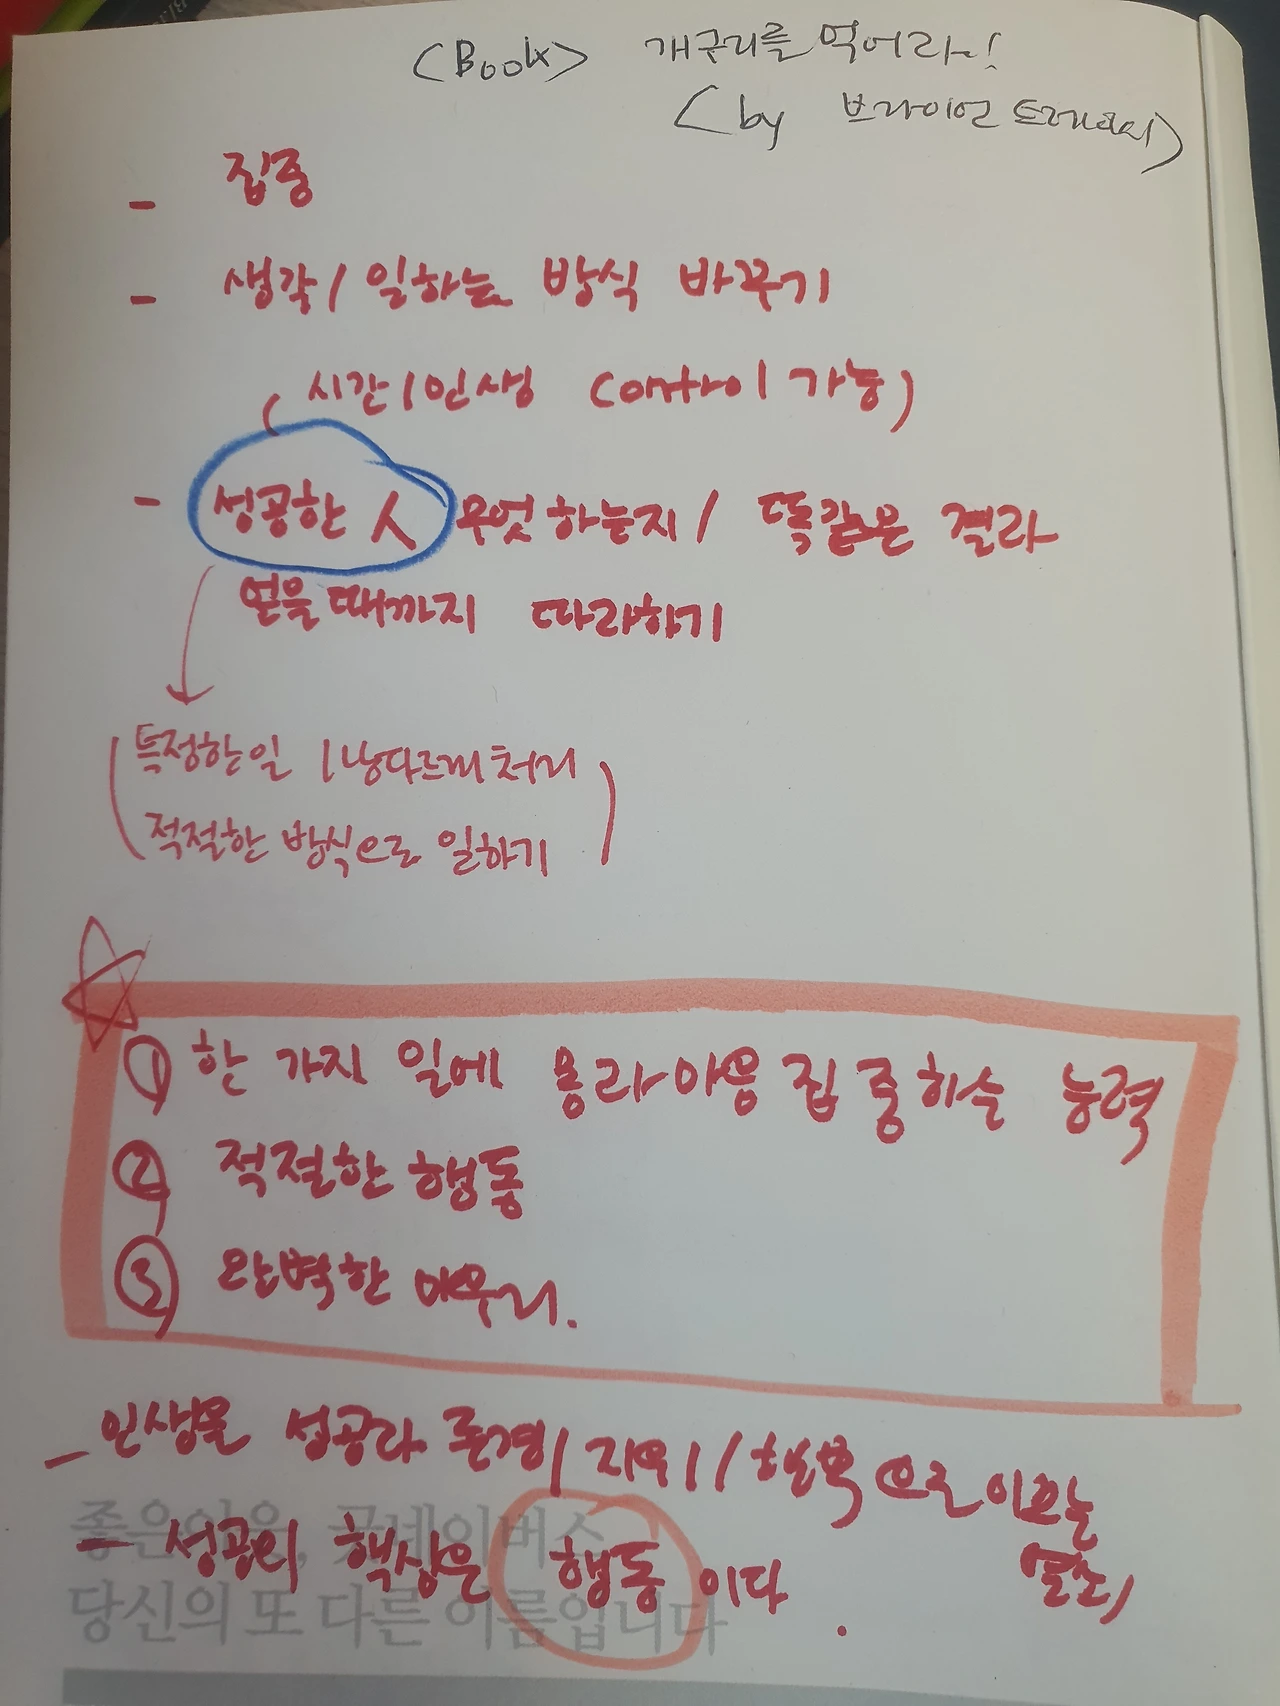 <Book> 개구리를 먹어라!
(by 브라이언 트레이시)
- 집중
- 생각/일하는 방식 바꾸기
(시간/인생 Control 가능)
- 성공한 人 무엇 하는지/ 똑같은 결과
얻을때까지 따라하기
(특정한 일 / 남다르게 처리
적절한 방식으로 일하기)
① 한 가지 일에 몰라야용 집중하슨 능력
② 적절한 행동
③ 완벽한 마무리.
- 인생을 성공과 존경/지위/행복으로 이끄는
열쇠/
- 성공의 핵심은 행동이다.
좋은이웃, 굿네이버스
당신의 또 다른 이름입니다